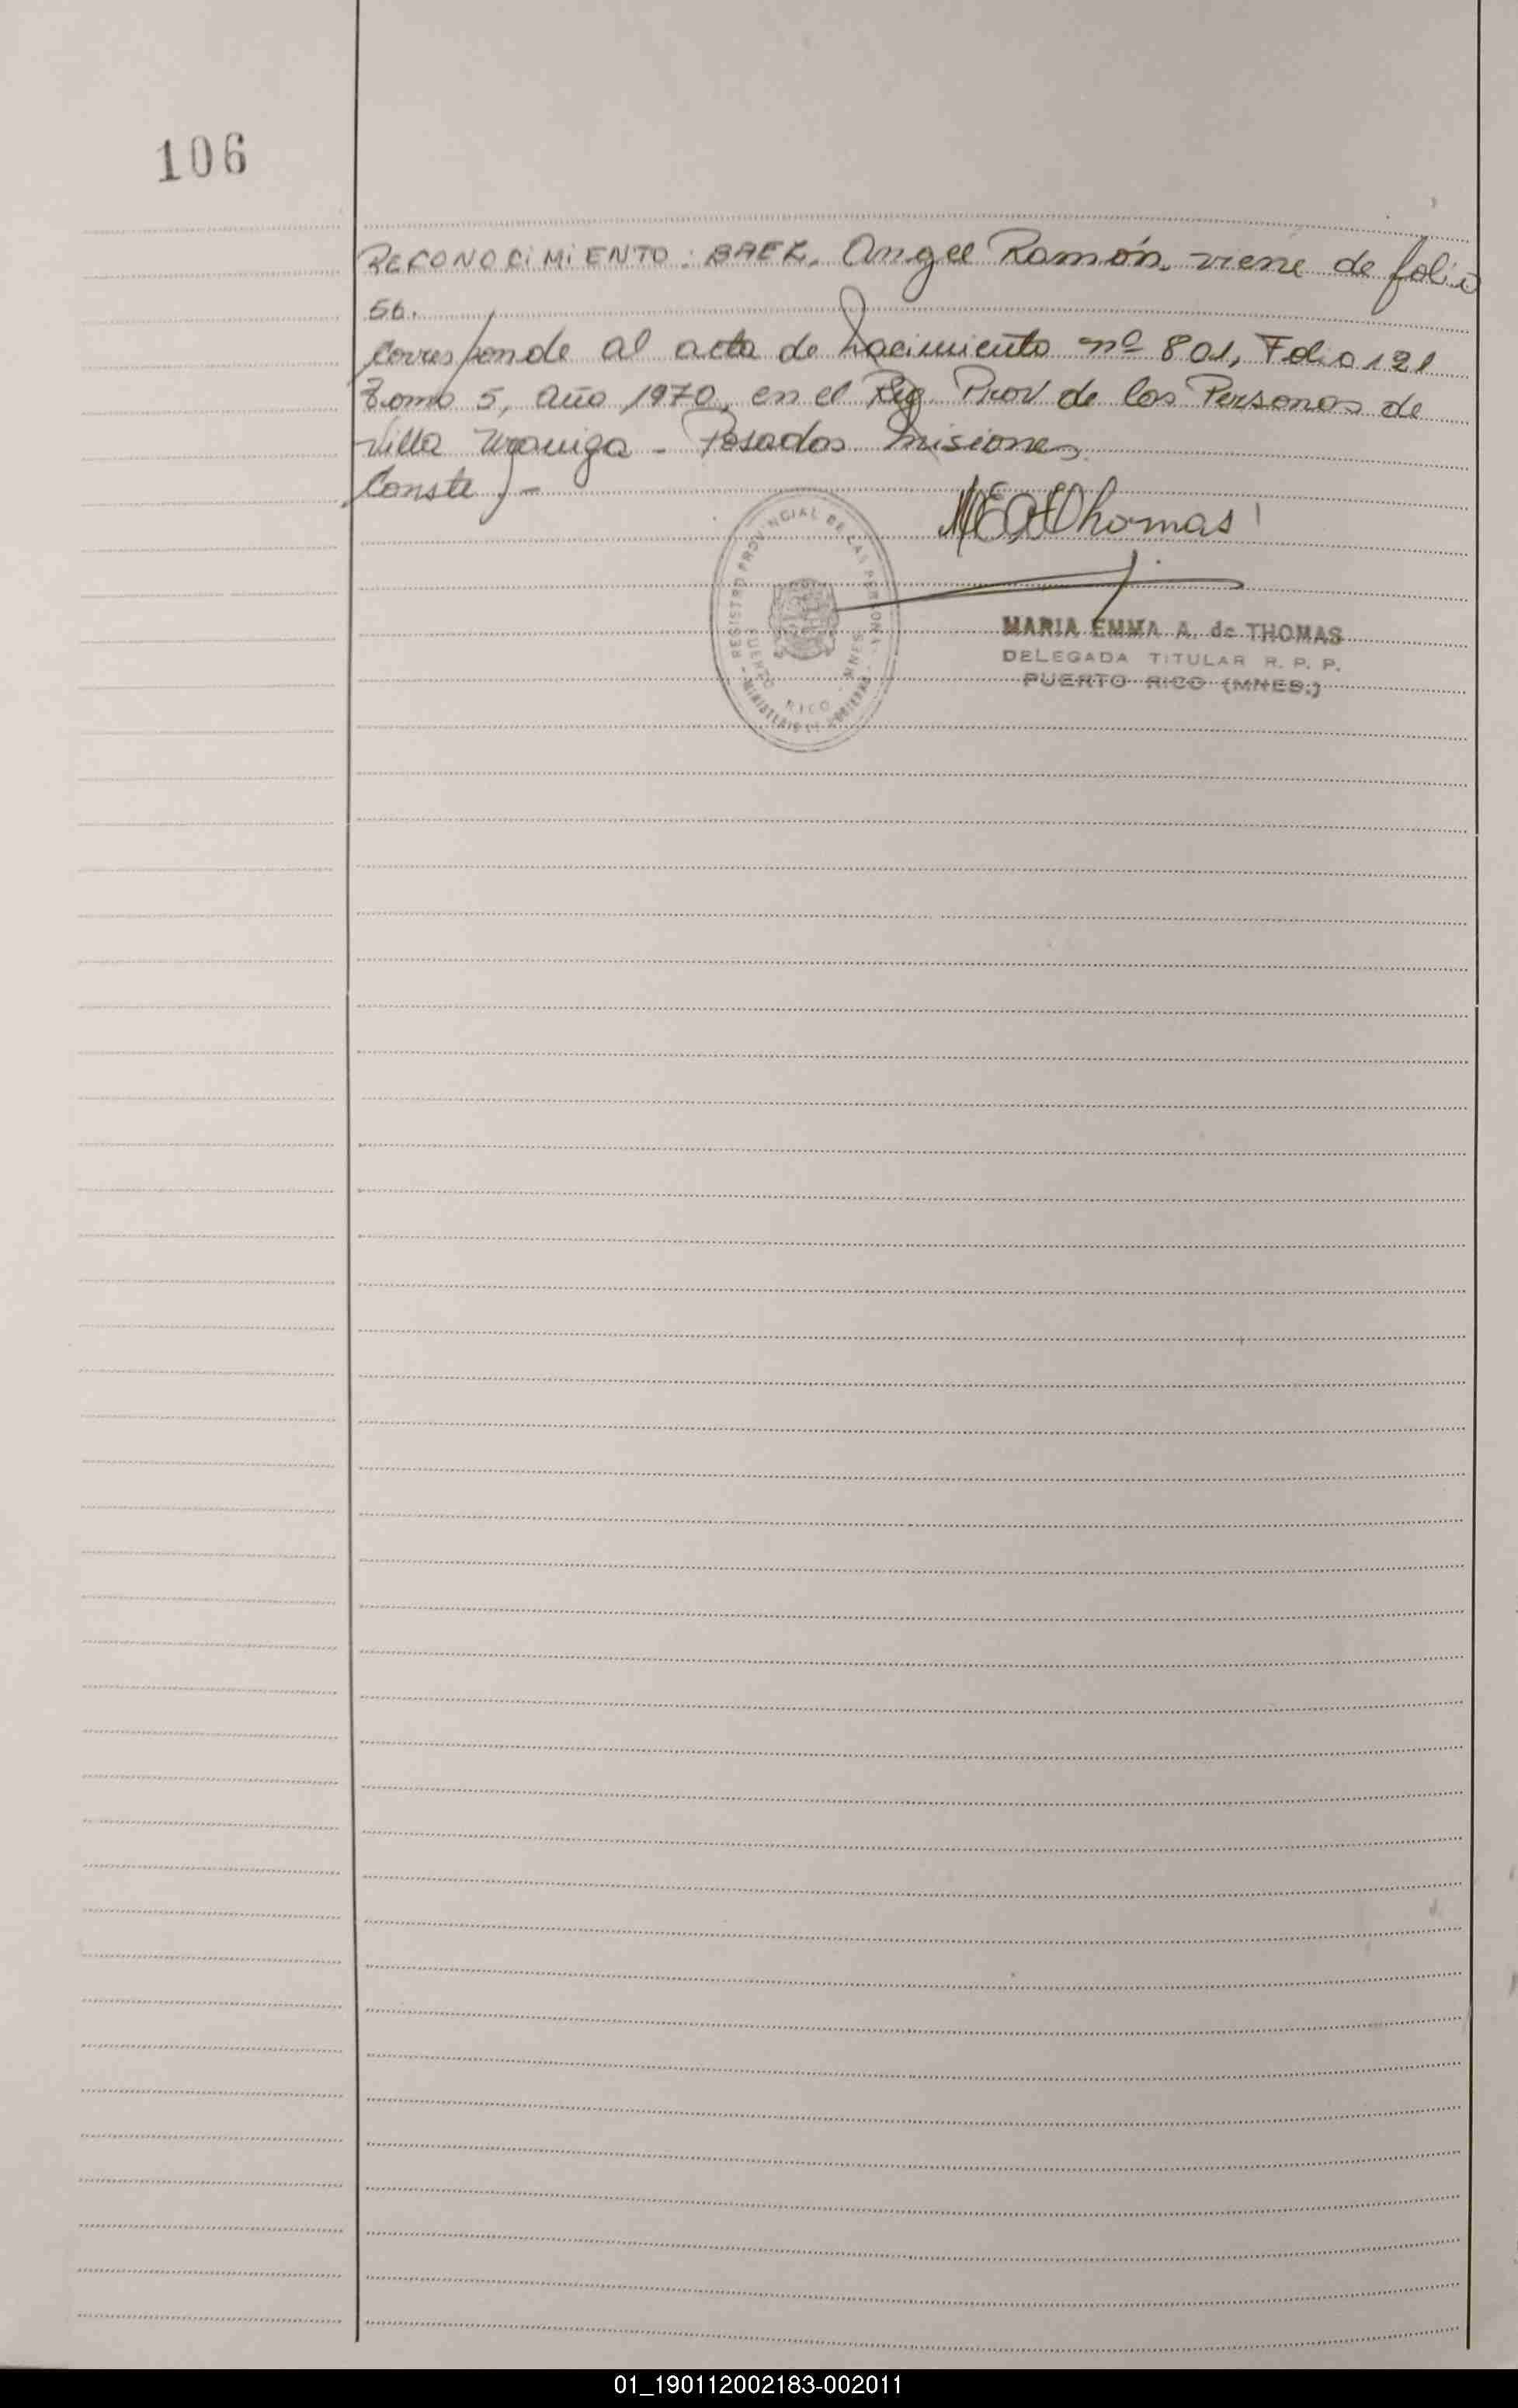 106
RECONOCIMIENTO: BAEZ, Angel Ramón, viene de folio
56.
Corresponde al acta de Nacimiento nº 801, Folio 121
Tomo 5, año 1970, en el Reg. Prov de las Personas de
Villa Urquiza - Posadas Misiones.
Conste.-
MEAdThomas
REGISTRO PROVINCIAL DE LAS PERSONAS
PUERTO RICO - MNES.
- MINISTERIO DE GOBIERNO -
MARIA EMMA A. de THOMAS
DELEGADA TITULAR R. P. P.
PUERTO RICO (MNES.)
01_190112002183-002011